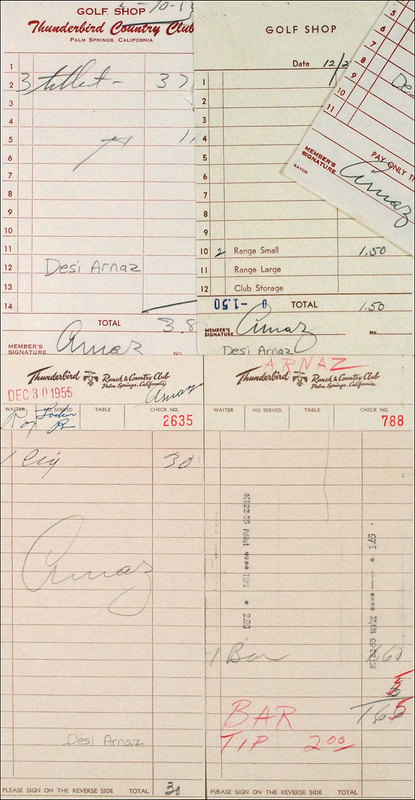 GOLF SHOP
Thunderbird Country Club
PALM SPRINGS, CALIFORNIA
1
2
3
4
5
6
7
8
9
10
11
12
13
14
3
37
Desi Arnaz
TOTAL
3.8
MEMBER'S
SIGNATURE
Arnaz
No.
GOLF SHOP
Date 12/2
1
2
3
4
5
6
7
8
9
10 2 Range Small 1.50
11 Range Large
12 Club Storage
0 -1.50
TOTAL 1.50
MEMBER'S
SIGNATURE
Arnaz
No.
Desi Arnaz
5
6
7
8
9
10
11
De
PAY ONLY T
MEMBER'S
SIGNATURE
Arnaz
Thunderbird Ranch & Country Club
Palm Springs, California
DEC 30 1955
Arnaz
WAITER
NO. SERVED
TABLE
CHECK NO.
2635
1 Cig 30
Arnaz
Desi Arnaz
PLEASE SIGN ON THE REVERSE SIDE TOTAL 30
ARNAZ
Thunderbird Ranch & Country Club
Palm Springs, California
WAITER
NO. SERVED
TABLE
CHECK NO.
788
OCT22-55
TIPS * 2.00
OCT22-55
* 1.65
1 Bar
BAR 165
TIP 2.00
PLEASE SIGN ON THE REVERSE SIDE TOTAL